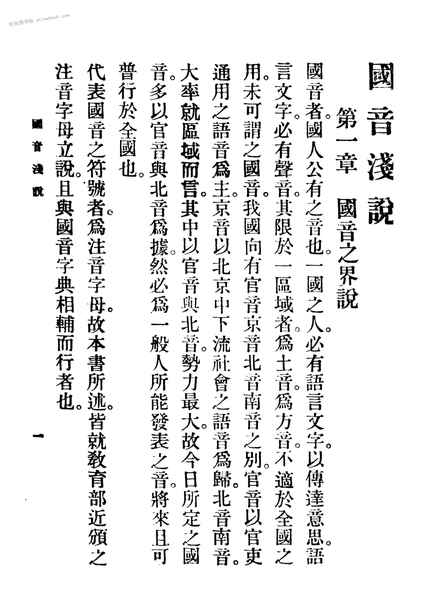 國音淺說
第一章 國音之界說
國音者。國人公有之音也。一國之人。必有語言文字。以傳達意思。語
言文字。必有聲音。其限於一區域者。爲土音。爲方音。不適於全國之
用。未可謂之國音。我國向有官音京音北音南音之別。官音以官吏
通用之語音爲主。京音以北京中下流社會之語音爲歸。北音南音。
大率就區域而言。其中以官音與北音。勢力最大。故今日所定之國
音。多以官音與北音爲據。然必爲一般人所能發表之音。將來且可
普行於全國也。
代表國音之符號者。爲注音字母。故本書所述。皆就教育部近頒之
注音字母立說。且與國音字典相輔而行者也。
國音淺說
一